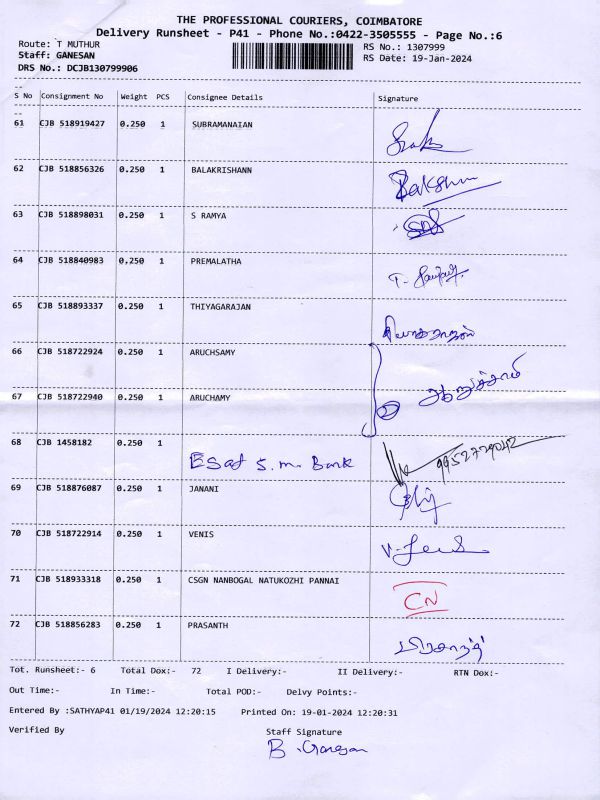 THE PROFESSIONAL COURIERS, COIMBATORE
Delivery Runsheet - P41 - Phone No.:0422-3505555 - Page No.:6
Route: T MUTHUR RS No.: 1307999
Staff: GANESAN RS Date: 19-Jan-2024
DRS No.: DCJB130799906
--
S No Consignment No Weight PCS Consignee Details Signature
--
61 CJB 518919427 0.250 1 SUBRAMANAIAN
62 CJB 518856326 0.250 1 BALAKRISHANN
63 CJB 518898031 0.250 1 S RAMYA
64 CJB 518840983 0.250 1 PREMALATHA
65 CJB 518893337 0.250 1 THIYAGARAJAN
66 CJB 518722924 0.250 1 ARUCHSAMY
67 CJB 518722940 0.250 1 ARUCHAMY
68 CJB 1458182 0.250 1 ESaf S.m. Bank 9952729042
69 CJB 518876087 0.250 1 JANANI
70 CJB 518722914 0.250 1 VENIS
71 CJB 518933318 0.250 1 CSGN NANBOGAL NATUKOZHI PANNAI CN
72 CJB 518856283 0.250 1 PRASANTH
Tot. Runsheet:- 6 Total Dox:- 72 I Delivery:- II Delivery:- RTN Dox:-
Out Time:- In Time:- Total POD:- Delvy Points:-
Entered By :SATHYAP41 01/19/2024 12:20:15 Printed On: 19-01-2024 12:20:31
Verified By Staff Signature
B. Ganesan